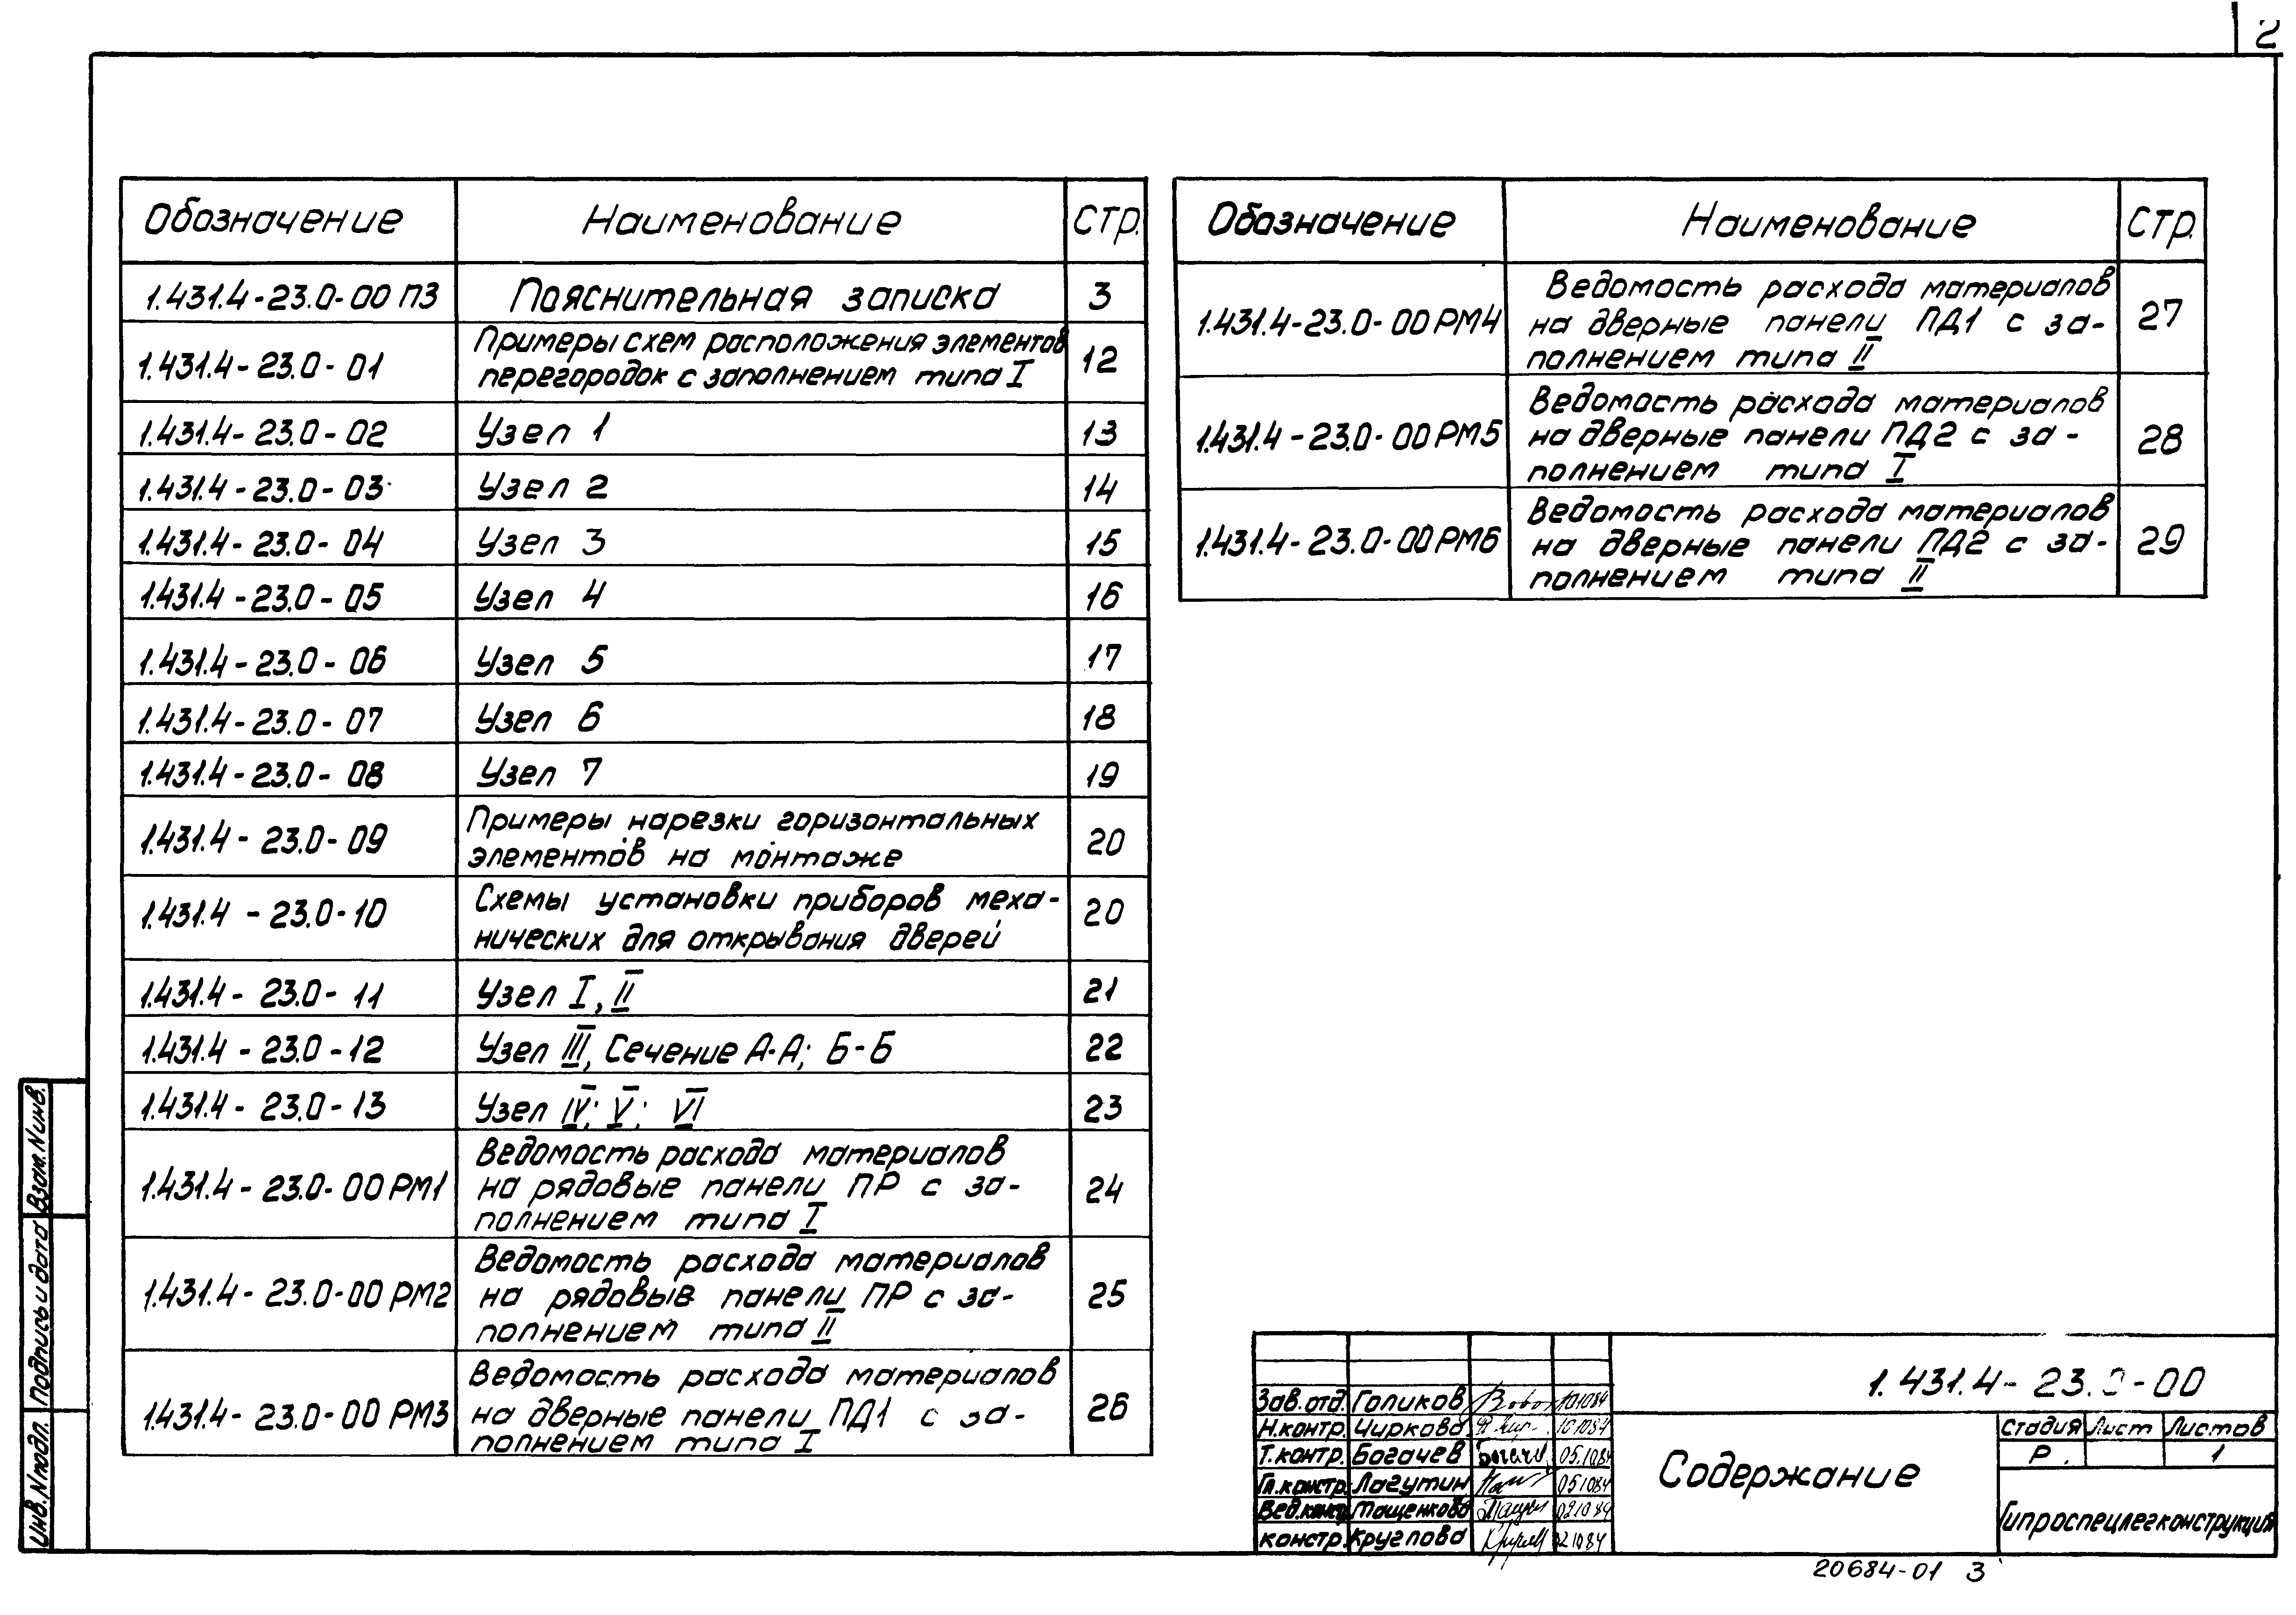 2
Обозначение Наименование Стр.
1.431.4-23.0-00 ПЗ Пояснительная записка 3
1.431.4-23.0-01 Примеры схем расположения элементов
перегородок с заполнением типа I 12
1.431.4-23.0-02 Узел 1 13
1.431.4-23.0-03 Узел 2 14
1.431.4-23.0-04 Узел 3 15
1.431.4-23.0-05 Узел 4 16
1.431.4-23.0-06 Узел 5 17
1.431.4-23.0-07 Узел 6 18
1.431.4-23.0-08 Узел 7 19
1.431.4-23.0-09 Примеры нарезки горизонтальных
элементов на монтаже 20
1.431.4-23.0-10 Схемы установки приборов меха-
нических для открывания дверей 20
1.431.4-23.0-11 Узел I, II 21
1.431.4-23.0-12 Узел III, Сечение А-А; Б-Б 22
1.431.4-23.0-13 Узел IV; V; VI 23
1.431.4-23.0-00 РМ1 Ведомость расхода материалов
на рядовые панели ПР с за-
полнением типа I 24
1.431.4-23.0-00 РМ2 Ведомость расхода материалов
на рядовыв панели ПР с за-
полнением типа II 25
1.431.4-23.0-00 РМ3 Ведомость расхода материалов
на дверные панели ПД1 с за-
полнением типа I 26
Обозначение Наименование Стр.
1.431.4-23.0-00 РМ4 Ведомость расхода материалов
на дверные панели ПД1 с за-
полнением типа II 27
1.431.4-23.0-00 РМ5 Ведомость расхода материалов
на дверные панели ПД2 с за-
полнением типа I 28
1.431.4-23.0-00 РМ6 Ведомость расхода материалов
на дверные панели ПД2 с за-
полнением типа II 29
Взам. N инв.
Подпись и дата
Инв. N подл.
Зав. отд. Голиков 101084
Н. контр. Чиркова 101084
Т. контр. Богачев 05.1084
Гл. констр. Лагутин 051084
Вед. констр. Тащенкова 021084
констр. Круглова 021084
1.431.4-23.0-00
Содержание
Стадия Лист Листов
Р. 1
Гипроспецлегконструкция
20684-01 3